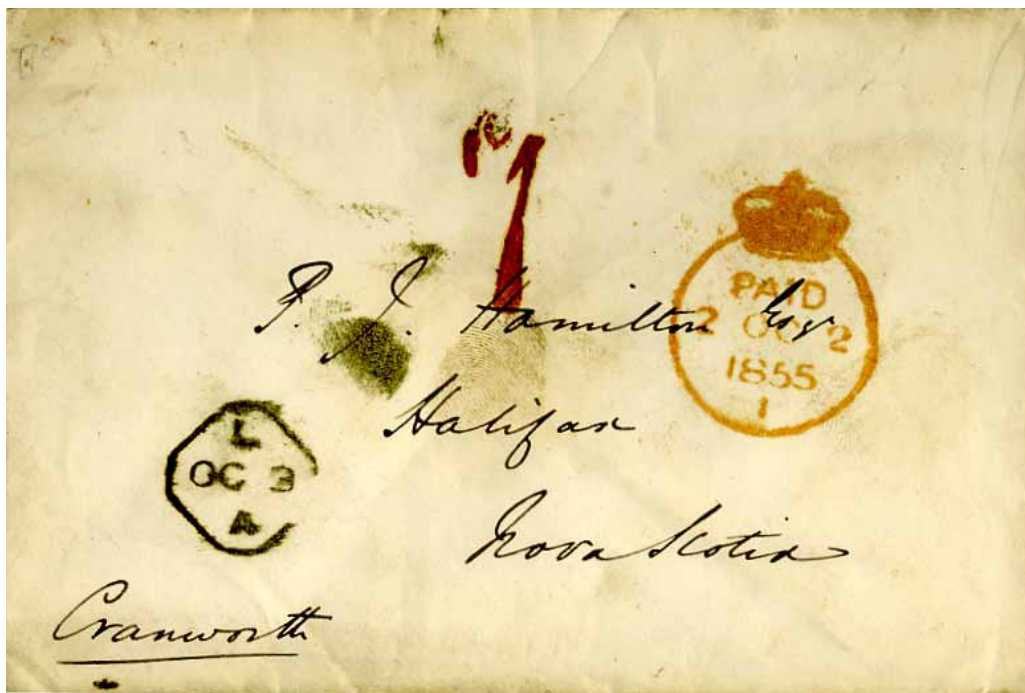 1
PAID
2 OC 2
1855
1
P. J. Hamilton Esqr
Halifax
Nova Scotia
L
OC 3
A
Cranworth